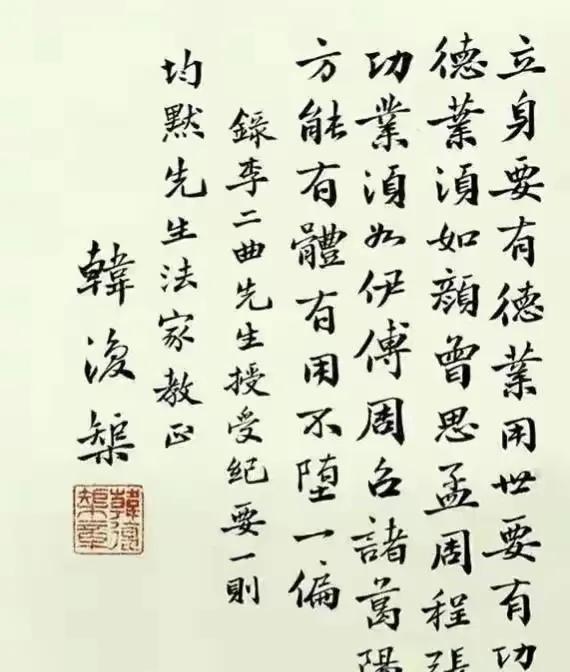 立身要有德業用世要有功
德業須如顏曾思孟周程張
功業須如伊傅周召諸葛陽
方能有體有用不墮一偏
錄李二曲先生授受紀要一則
均默先生法家教正
韓復榘
韓復
榘章